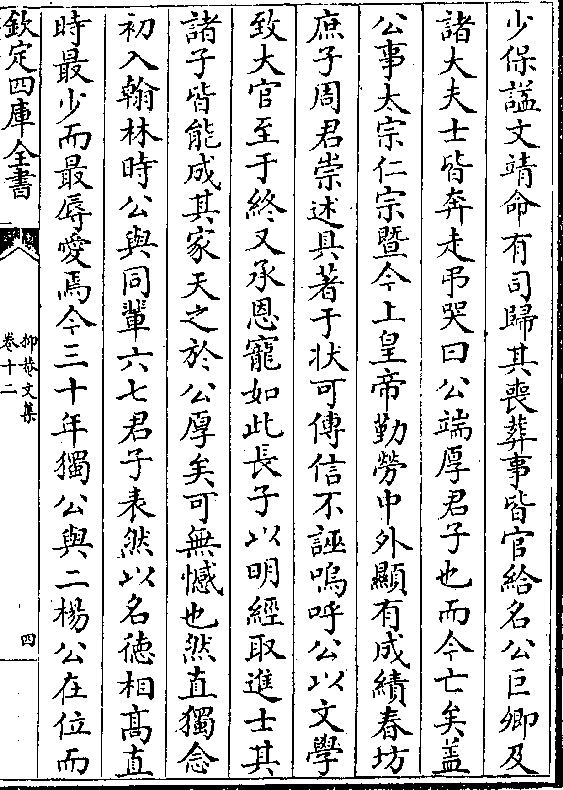 少保諡文靖命有司歸其喪葬事皆官給名公巨卿及
諸大夫士皆奔走弔哭曰公端厚君子也而今亡矣盖
公事太宗仁宗暨今上皇帝勤勞中外顯有成績春坊
庶子周君崇述具著于状可傳信不誣嗚呼公以文學
致大官至于終又承恩寵如此長子以明經取進士其
諸子皆能成其家天之於公厚矣可無憾也然直獨念
初入翰林時公與同輩六七君子表然以名徳相髙直
時最少而最辱愛焉今三十年獨公與二楊公在位而
欽定四庫全書
抑菴文集
卷十二
四